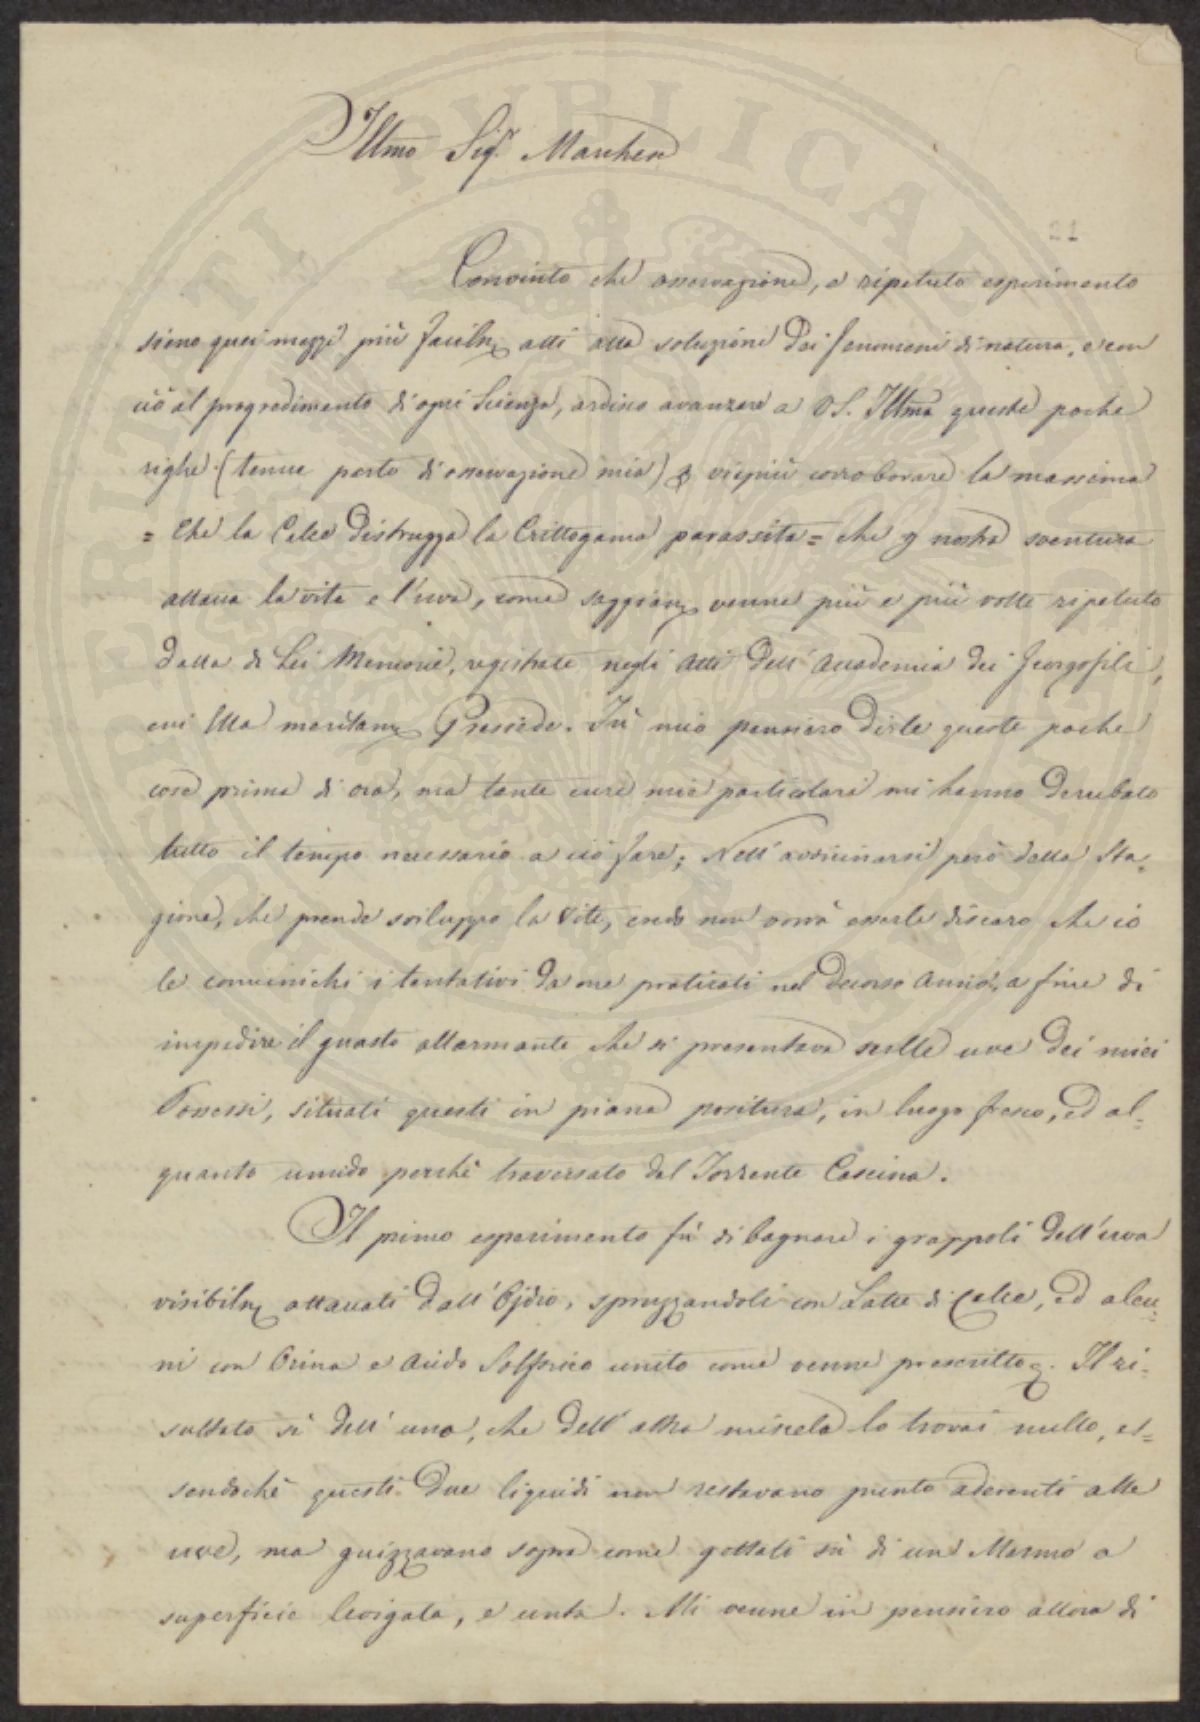 Illmo Sig.r Marchese
21
Convinto che osservazione, e ripetuto esperimento
siano quei mezzi più facilm. atti alla soluzione dei fenomeni di natura, e con
ciò al progredimento di ogni Scienza, ardisco avanzare a VS. Illma queste poche
righe (tenue parto di osservazione mia) p viepiù corroborare la massima
= che la Calce distrugga la Crittogama parassita = che p nostra sventura
attacca la vite e l'uva, come saggiam. venne più e più volte ripetuto
dalla di Lei Memorie, registrate negli Atti dell'Accademia dei Georgofili,
cui Ella meritam. Presiede. Fù mio pensiero dirle queste poche
cose prima di ora, ma tante cure mie particolari mi hanno derubato
tutto il tempo necessario a ciò fare; Nell'avvicinarsi però della Sta=
gione, che prende sviluppo la Vite, credo non vorrà esserle discaro che io
le comunichi i tentativi da me praticati nel decorso Anno, a fine di
impedire il guasto allarmante che si presentava sulle uve dei miei
Possessi, situati questi in piana positura, in luogo fresco, ed al=
quanto umido perchè traversato dal Torrente Cascina.
Il primo esperimento fù di bagnare i grappoli dell'uva
visibilm. attaccati dall'Ojdio, spruzzandoli con Latte di Calce, ed alcu=
ni con Orina e Acido Solforico unito come venne prescritto. Il ri=
sultato sì dell'una, che dell'altra miscela lo trovai nullo, es=
sendochè questi due liquidi non restavano punto aderenti alle
uve, ma guizzavano sopra come gettati sù di un Marmo a
superficie levigata, e unta. Mi venne in pensiero allora di